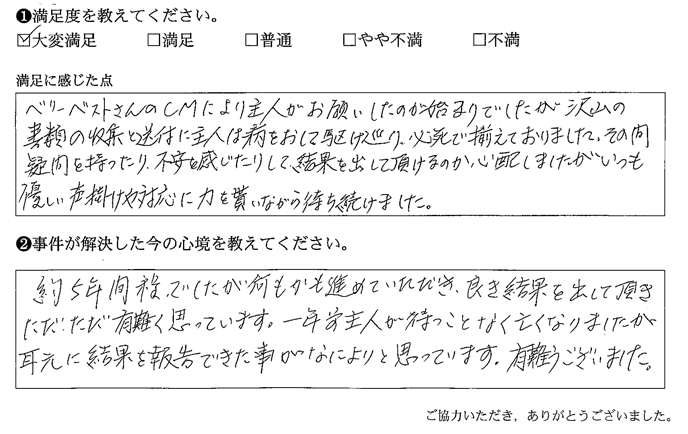 ❶満足度を教えてください。
☑大変満足 □満足 □普通 □やや不満 □不満
満足に感じた点
ベリーベストさんのCMにより主人がお願いしたのが始まりでしたが沢山の
書類の収集と送付に主人は病をおして駆け巡り、必死で揃えておりました。その間
疑問を持ったり、不安を感じたりして、結果を出して頂けるのか心配しましたがいつも
優しい声掛けや対応に力を貰いながら待ち続けました。
❷事件が解決した今の心境を教えてください。
約5年間程でしたが何もかも進めていただき、良き結果を出して頂き
ただただ有難く思っています。一年前主人が待つことなく亡くなりましたが
耳元に結果を報告できた事がなによりと思っています。有難うございました。
ご協力いただき，ありがとうございました。